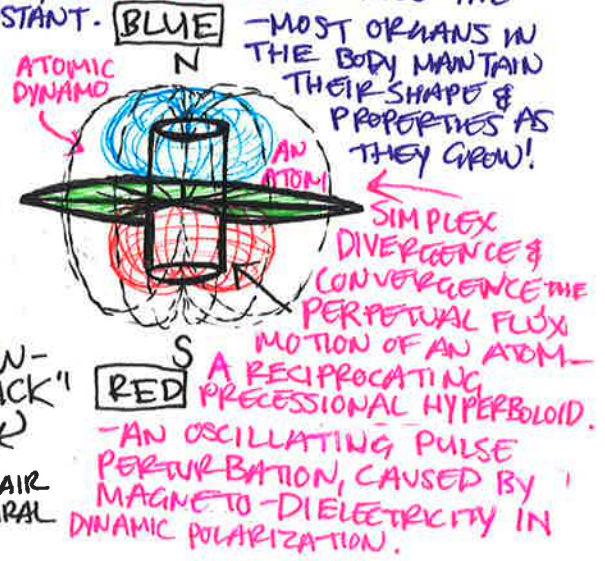 STANT.
BLUE
N
-MOST ORGANS IN
THE BODY MAINTAIN
THEIR SHAPE &
PROPERTIES AS
THEY GROW!
ATOMIC
DYNAMO
AN
ATOM
SIMPLEX
DIVERGENCE &
CONVERGENCE THE
PERPETUAL FLUX
MOTION OF AN ATOM-
A RECIPROCATING
PRECESSIONAL HYPERBOLOID.
S
RED
-AN OSCILLATING PULSE
PERTURBATION, CAUSED BY
MAGNETO-DIELECTRICITY IN
DYNAMIC POLARIZATION.
N-
ACK"
AIR
RAL